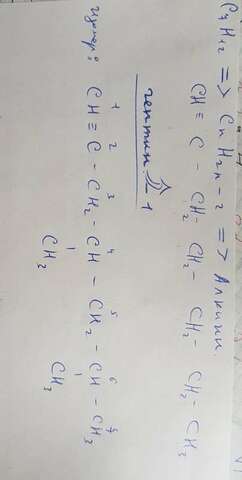 C₇H₁₂ => CnH₂n-2 => Алкины.
CH ≡ C - CH₂ - CH₂ - CH₂ - CH₂ - CH₃
гептин - 1
Изомер:
1 2 3 4 5 6 7
CH ≡ C - CH₂ - CH - CH₂ - CH - CH₃
CH₃ CH₃